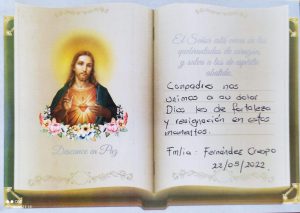 El Señor está cerca de los
quebrantados de corazón,
y salva a los de espíritu
abatido.
Compadres nos
unimos a su dolor
Dios les de fortaleza
y resignación en estos
momentos.
Fmlia: Fernández Crespo
22/05/2022.
Descanse en Paz